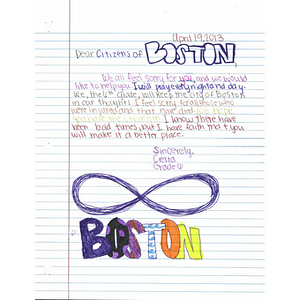 April 19, 2013
Dear Citizens of BOSTON,
We all feel sorry for you, and we would
like to help you. I will pray every night and day.
We, the 6th grade, will keep the city of Boston
in our thoughts. I feel sorry for all those who
were injured and that have died. We hope
I know there have
been bad times, but I have faith that you
will make it a better place.
Sincerely,
Cierra
Grade 6
BOSTON